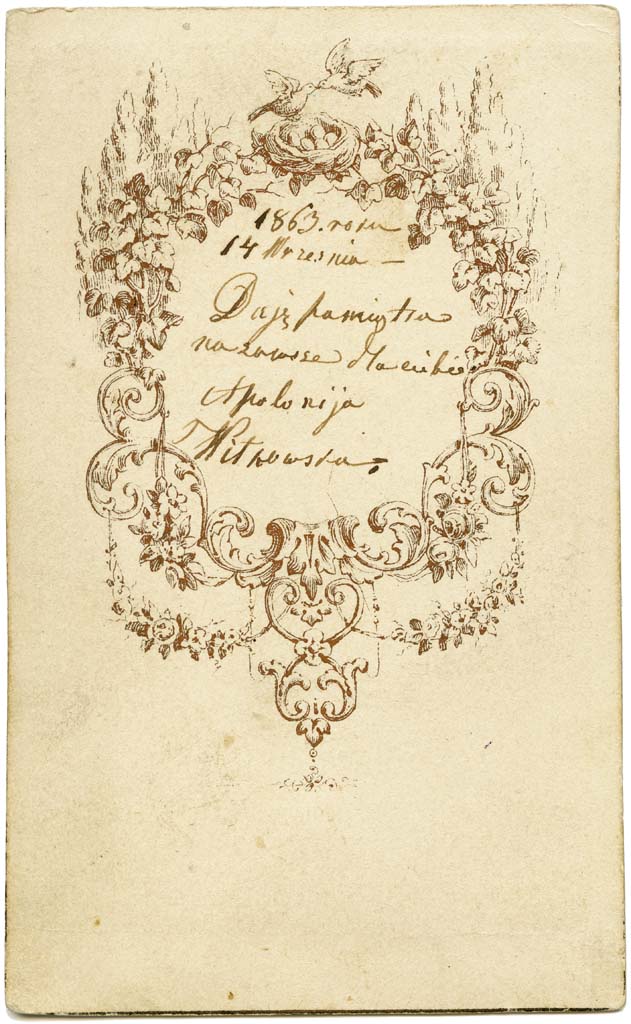 1863. roku
14 Wrzesnia —
Daję pamiętka
na zawsze dla ciebie
Apolonija
Witkowska